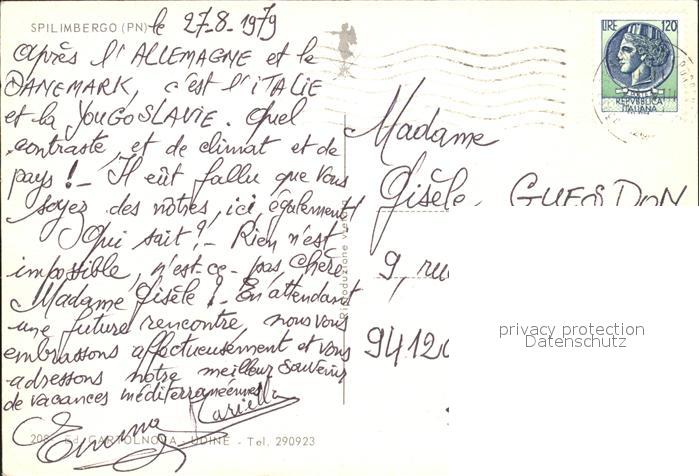 SPILIMBERGO (PN) le 27-8-1979
après l'ALLEMAGNE et le
DANEMARK, c'est l'ITALIE
et la YOUGOSLAVIE. Quel
contraste, et de climat et de
pays! - Il eût fallu que vous
soyez des nôtres, ici, également!
Qui sait?! - Rien n'est
impossible, n'est-ce-pas, Chère
Madame Gisèle! - En attendant
une future rencontre, nous vous
embrassons affectueusement et vous
adressons notre meilleur souvenir
de vacances méditerranéennes
Emma
208 - Ed. CARTOLNOVA - UDINE - Tel. 290923
Riproduzione
LIRE 120
REPVBBLICA
ITALIANA
Madame
Gisèle GUESDON
9, rue
94120
privacy protection
Datenschutz